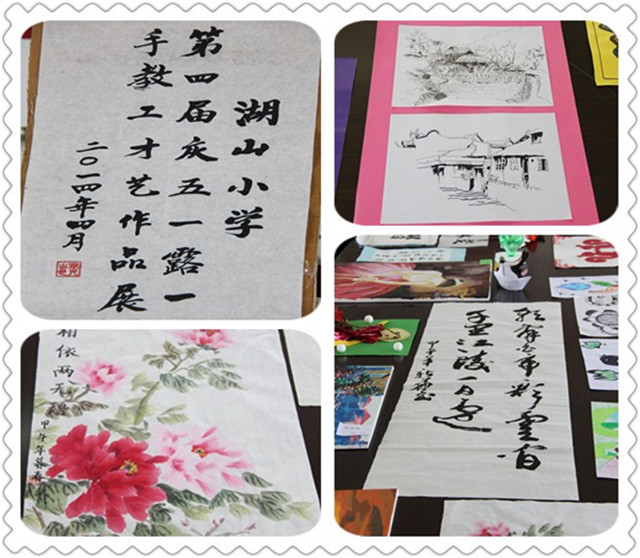 湖山小学
第四届庆五一露一
手教工才艺作品展
二〇一四年四月
相依两无
甲午年暮春
朝辞白帝彩云间
千里江陵一日还
甲午年